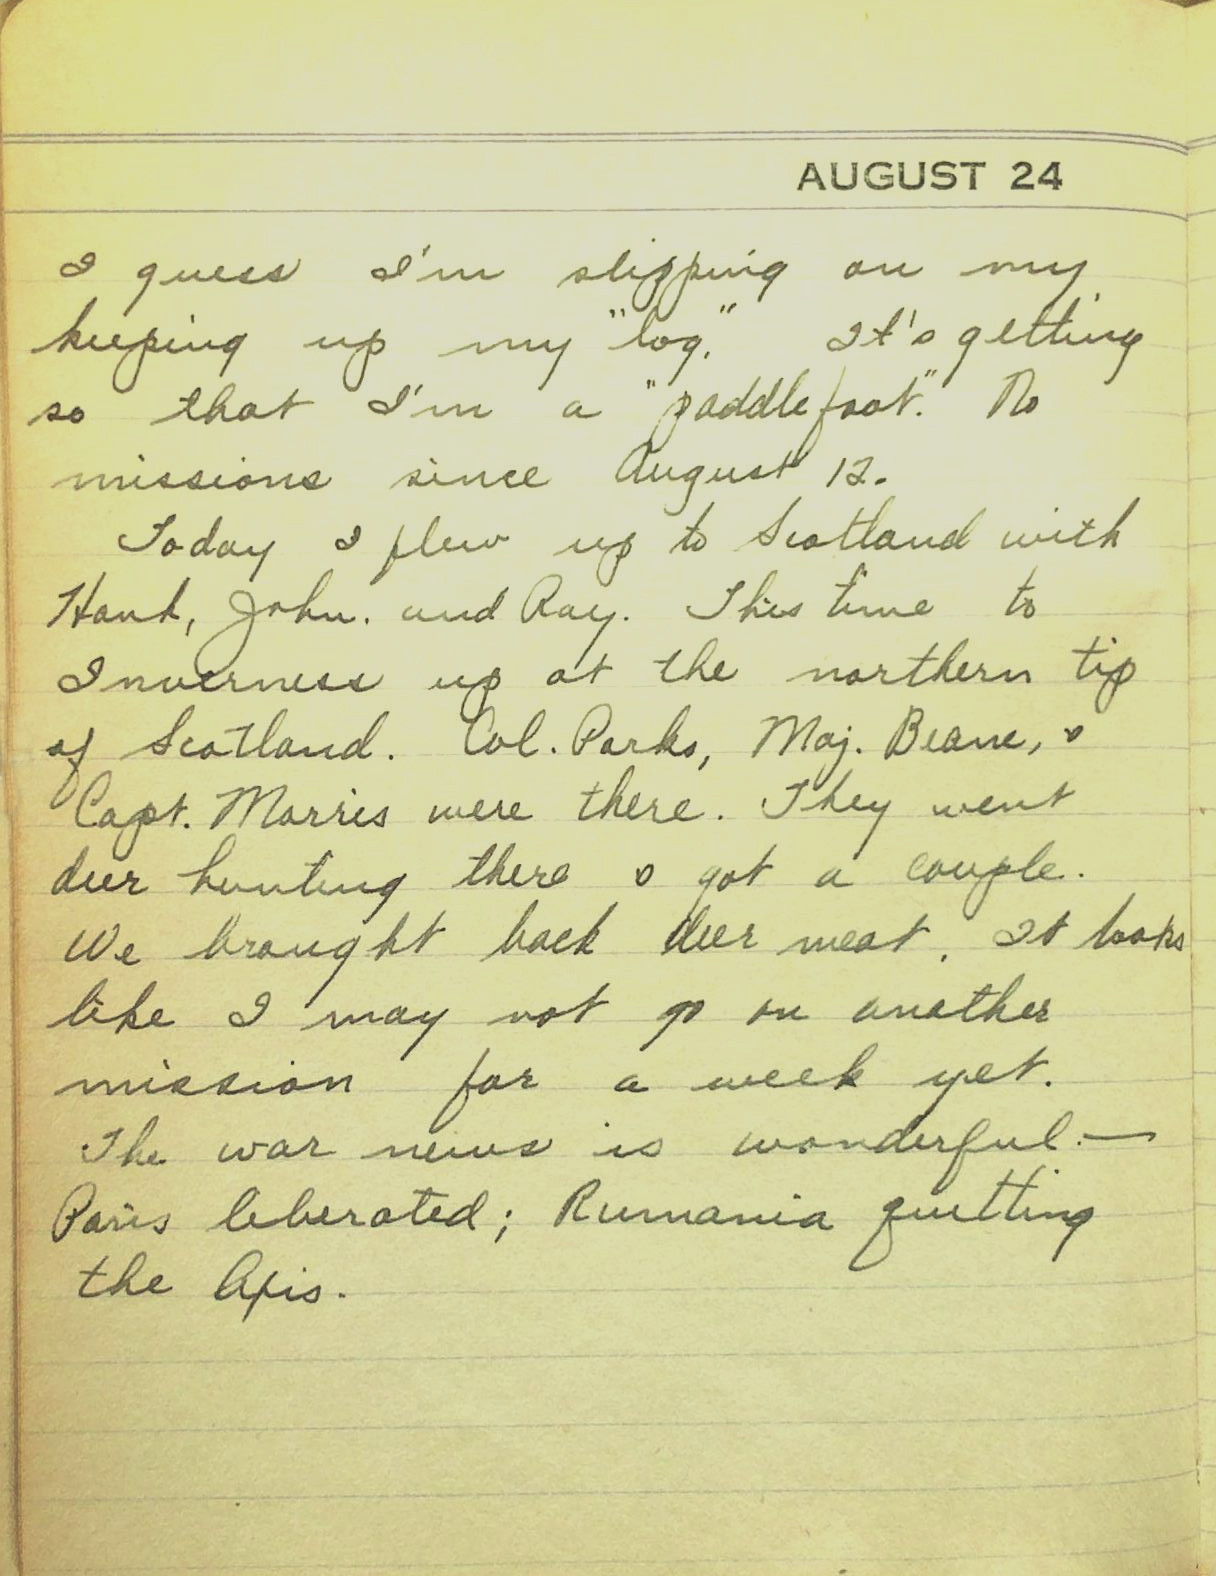 AUGUST 24
I guess I'm slipping on my
keeping up my "log." It's getting
so that I'm a "paddlefoot." No
missions since August 12.
Today I flew up to Scotland with
Hank, John. and Ray. This time to
Inverness up at the northern tip
of Scotland. Col. Parks, Maj. Beane, &
Capt. Morris were there. They went
deer hunting there & got a couple.
We brought back deer meat. It looks
like I may not go on another
mission for a week yet.
The war news is wonderful. —
Paris liberated; Rumania quitting
the Axis.